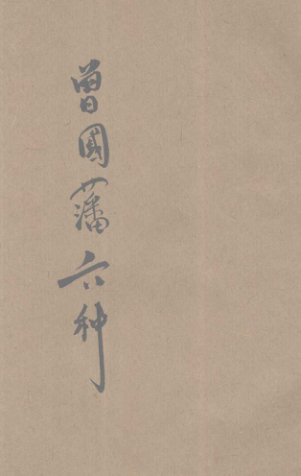 曾國藩六种